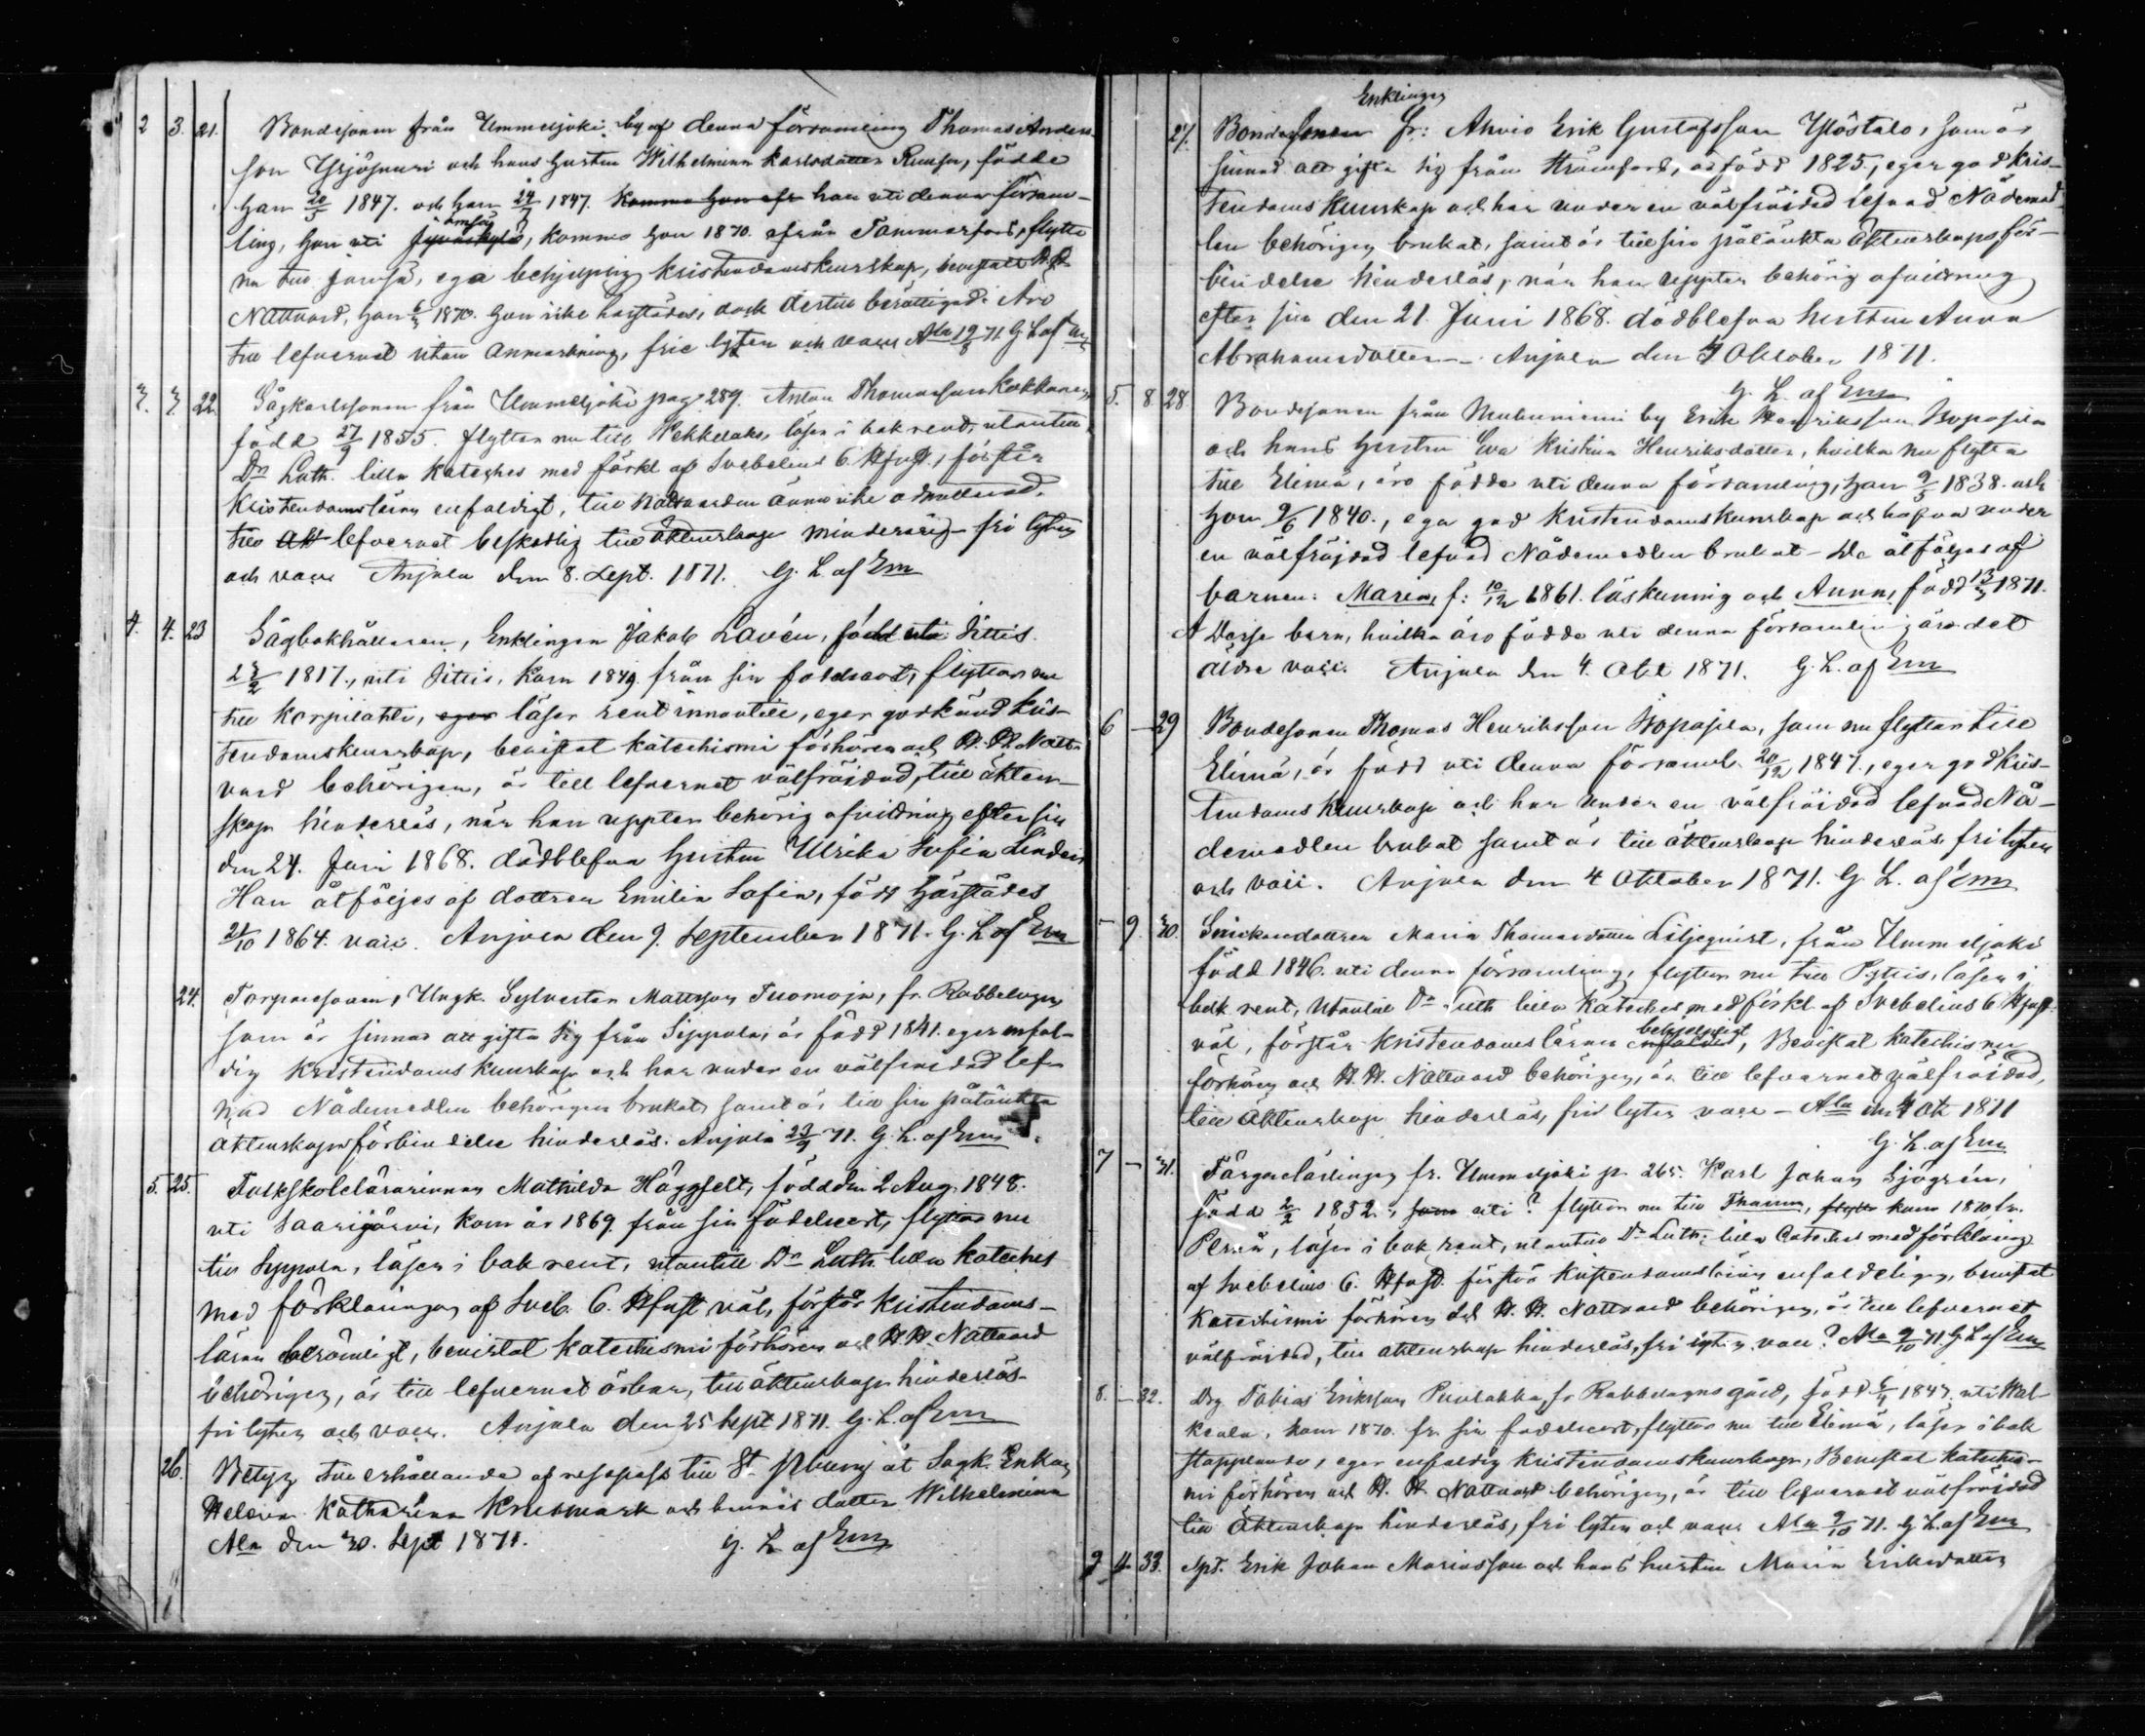 2 3. 21. Bondesonen från Ummeljoki by af denna församling Thomas Anders-
son Yrjönuri och hans hustru Wilhelmina Karlsdotter, födde
han 20/5 1847. och hon 24/7 1847. Komma hon han uti denna försam-
ling, hon uti Jämsä, kommo hon 1870. från Tammerfors, flytta
nu till Jämsä, ega behjelplig kristendomskunskap, bevistat H. H.
Nattvard, hon 1870. hon icke härstädes, dock dertill berättigad. Äro
till lefvernet utan anmärkning, frie lyten och vacc. Ala 12/8 71 G. L. af Em
3. 3. 22. Sågkarlssonen från Ummeljoki pag. 289. Anton Thomasson Kokkonen,
född 27/9 1855. flyttar nu till Pekkelaks, läser i bok rent, utantill
Dr Luth. lilla Kateches med förkl. af Svebelius 6. Hfvst., förstår
Kristendomsläran enfaldigt, till nattvarden ännu icke admitterad,
till lefvernet beskedlig till äktenskap minderårig fri lyten
och vacc Anjala den 8. Sept. 1871. G. L. af Em
4. 4. 23 Sågbokhållaren, Enklingen Jakob Lavén, född uti Sittis
1817., uti Sittis, kom 1849. från sin födelseort, flyttar nu
till Karpilahti, eger läser rent innantill, eger godkänd kris-
tendomskunskap, bevistat katechismi förhören och H. H. Natt-
vard behörigen, är till lefvernet välfräjdad, till äkten-
skap hinderlös, när han uppter behörig afvittring efter sin
den 24. Juni 1868. dödblefna hustru Ulrika Sofia Lindén
Han åtföljes af dottren Emilia Sofia, född härstädes
21/10 1864. vacc. Anjala den 9. September 1871. G. L. af Em
24. Torparesonen, Ungk. Sylvester Mattsson Tuomoja, fr. Rabbelugn
som är sinnad att gifta sig från Sippola, är född 1841. eger enfal-
dig Kristendoms kunskap och har under en välfräjdad lef-
nad Nådemedlen behörigen brukat, samt är till sin påtänkta
äktenskapsförbindelse hinderlös. Anjala 23/9 71. G. L. af Em
5. 25. Folkskolelärarinnan Mathilda Häggfelt, född den 2 Aug. 1848.
uti Saarijärvi, kom år 1869. från sin födelseort, flyttar nu
till Sippola, läser i bok rent, utantill Dr Luth. lilla kateches
med förklaringen af Sveb. 6. Hfvst väl, förstår Kristendoms-
läran berömligt, bevistat katechismi förhören och H. H. Nattvard
behörigen, är till lefvernet ärbar, till äktenskap hinderlös
fri lyten och vacc. Anjala den 25 Sept 1871. G. L. af Em
26. Betyg till erhållande af respass till St. Pburg åt Sågk. Enkan
Helena Katharina Krusmark och hennes dotter Wilhelmina
Ala den 30. Sept 1871. G. L. af Em
Enklingen
27. Bondesonen fr: Ahvio Erik Gustafsson Ylöstalo, som är
sinnad att gifta sig från Strömfors, är född 1825., eger god Kris-
tendoms kunskap och har under en välfräjdad lefnad Nådemed-
len behörigen brukat, samt är till sin påtänkta äktenskapsför-
bindelse hinderlös, när han uppter behörig afvittring
efter sin den 21. Juni 1868. dödblefna hustru Anna
Abrahamsdotter. Anjala den 4 Oktober 1871.
G. L. af Em
5. 8. 28. Bondesonen från Muhniemi by Erik Henriksson Isopajla
och hans hustru Eva Kristina Henriksdotter, hvilka nu flytta
till Elimä, äro födde uti denna församling, han 9/5 1838. och
hon 9/6 1840., ega god Kristendomskunskap och hafva under
en välfräjdad lefnad Nådemedlen brukat. De åtföljas af
barnen: Maria, f: 10/12 1861. läskunnig och Anna, född 13/3 1871.
Desse barn, hvilka äro födde uti denna församling äro det
äldre vacc. Anjala den 4. Okt 1871. G. L. af Em
6 – 29 Bondesonen Thomas Henriksson Isopajla, som nu flyttar till
Elimä, är född uti denna församl. 20/12 1847., eger god kris-
tendoms kunskap och har under en välfräjdad lefnad Nå-
demedlen brukat samt är till äktenskap hinderlös fri lyten
och vacc. Anjala den 4 Oktober 1871. G. L. af Em
– 9. 30. Snickaredottren Maria Thomasdotter Liljeqvist, från Ummeljoki
född 1846. uti denna församling, flyttar nu till Pyttis, läser i
bok rent, utantill Dr Luth lilla Kateches med förkl. af Svebelius 6 Hfvst.
väl, förstår Kristendomsläran behjelpligt, Bevistat katechismi
förhören och H. H. Nattvard behörigen, är till lefvernet välfräjdad,
till äktenskap hinderlös, fri lyten vacc – Ala den 4 Okt 1871
G. L. af Em
7 – 31. Färgarelärlingen fr. Ummeljoki p. 265. Karl Johan Sjögrén,
född 2/2 1852., som uti? flyttar nu till Thamn, flyttar kom 1870 fr.
Pernå, läser i bok rent, utantill Dr Luth. lilla Cateches med förklaring
af Svebelius 6. Hfvst. förstår Kristendomsläran enfaldeligen, bevistat
Katechismi förhören och H. H. Nattvard behörigen, är till lefvernet
välfräjdad, till äktenskap hinderlös, fri lyten vacc? Ala 9/10 71 G. L. af Em
8. – 32. Drg Tobias Eriksson Puolakka, fr Rabbelugns gård, född 1847. uti Wal-
keala, kom 1870. fr. sin födelseort, flyttar nu till Elimä, läser i bok
stapplande, eger enfaldig Kristendomskunskap, Bevistat katechis-
mi förhören och H. H. Nattvard behörigen, är till lefvernet välfräjdad
till äktenskap hinderlös, fri lyten och vacc Ala 9/10 71. G. L. af Em
9 4 33. Erik Johan Mariasson och hans hustru Maria Eriksdotter